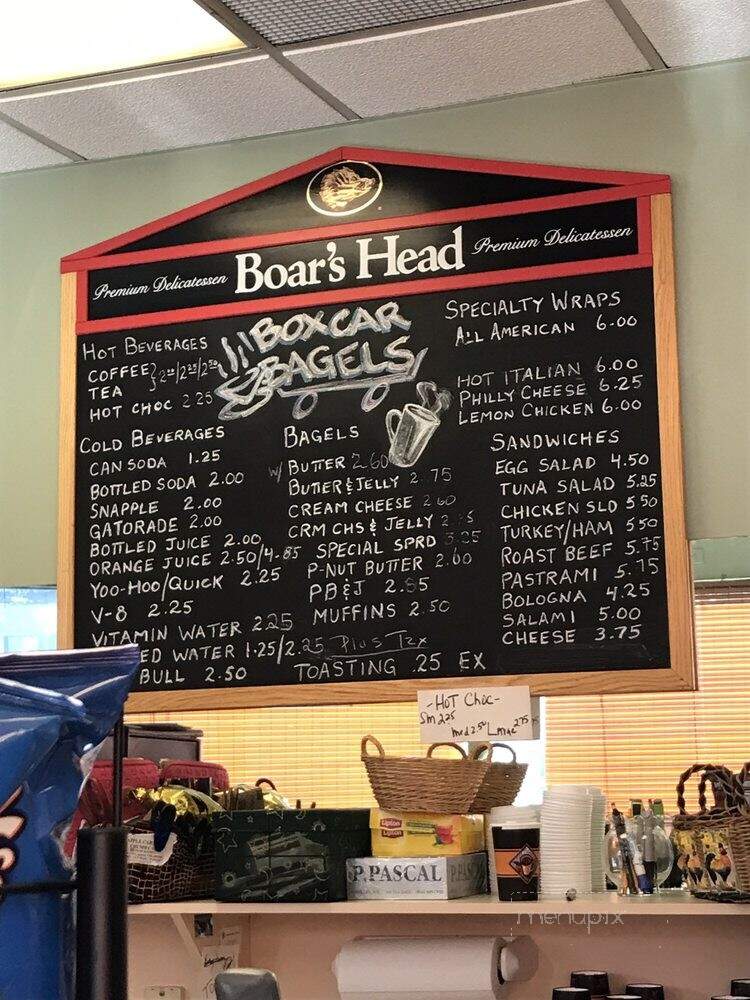 Premium Delicatessen Boar's Head Premium Delicatessen
BOXCAR
BAGELS
HOT BEVERAGES
COFFEE
TEA
HOT CHOC 2.25
COLD BEVERAGES
CAN SODA 1.25
BOTTLED SODA 2.00
SNAPPLE 2.00
GATORADE 2.00
BOTTLED JUICE 2.00
ORANGE JUICE 2.50/4.85
YOO-HOO/QUICK 2.25
V-8 2.25
VITAMIN WATER 2.25
ED WATER 1.25/2.25
BULL 2.50
BAGELS
W/ BUTTER 2.60
BUTTER & JELLY 2.75
CREAM CHEESE 2.60
CRM CHS & JELLY
SPECIAL SPRD 3.25
P-NUT BUTTER 2.60
PB & J
MUFFINS 2.50
Plus Tax
TOASTING .25 EX
SPECIALTY WRAPS
ALL AMERICAN 6.00
HOT ITALIAN 6.00
PHILLY CHEESE 6.25
LEMON CHICKEN 6.00
SANDWICHES
EGG SALAD 4.50
TUNA SALAD 5.25
CHICKEN SLD 5.50
TURKEY/HAM 5.50
ROAST BEEF 5.75
PASTRAMI 5.75
BOLOGNA 4.25
SALAMI 5.00
CHEESE 3.75
-HOT Choc-
Sm 2.25
med 2.50 Large 2.75
Lipton
Lipton
P. PASCAL
menupix